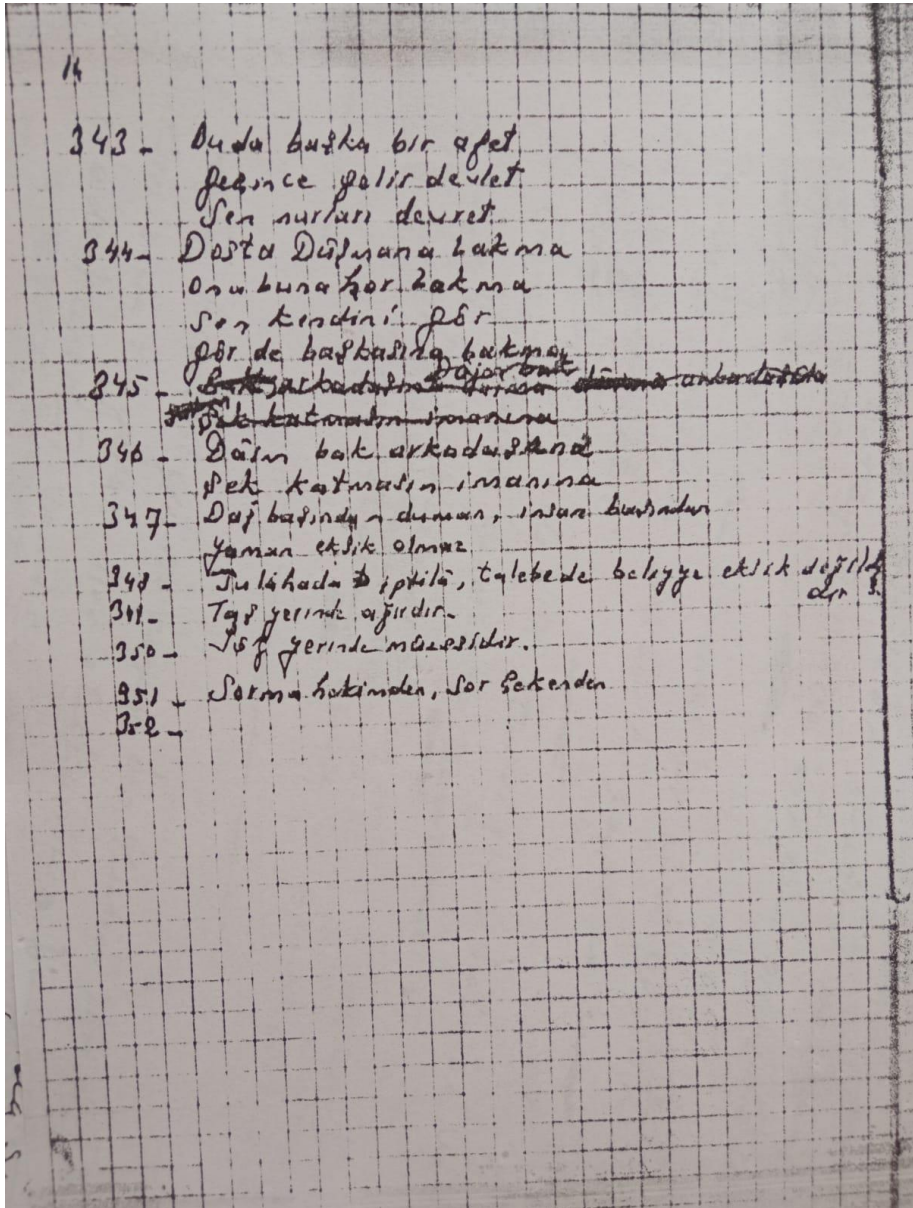 14
343- Buda başka bir afet
geçince gelir devlet
Sen nurları devret
344- Dosta Düşmana bakma
onu buna hor bakma
Sen kendini gör
gör de başkasına bakma
345-
şek katmasın imanına
346- Dâim bak arkadaşına
şek katmasın imanına
347- Dağ başından duman, insan başından
yaman eksik olmaz
348- Sulâhada iptilâ, talebede beliyye eksik değil
dir
349- Taş yerinde ağırdır.
350- Söz yerinde
351- Sorma hekimden, sor çekenden
352-